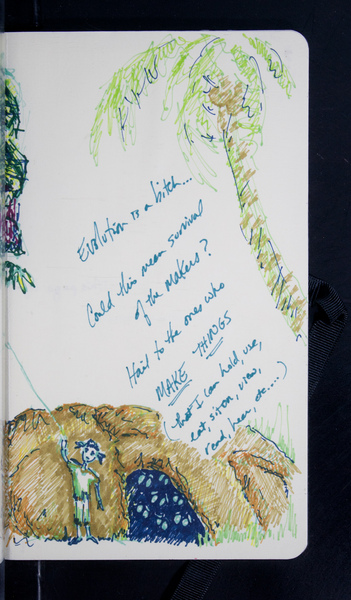 Evolution is a bitch...
Could this mean survival
of the makers?
Hail to the ones who
MAKE THINGS
(that I can hold, use,
eat, sit on, view,
read, hear, etc....)